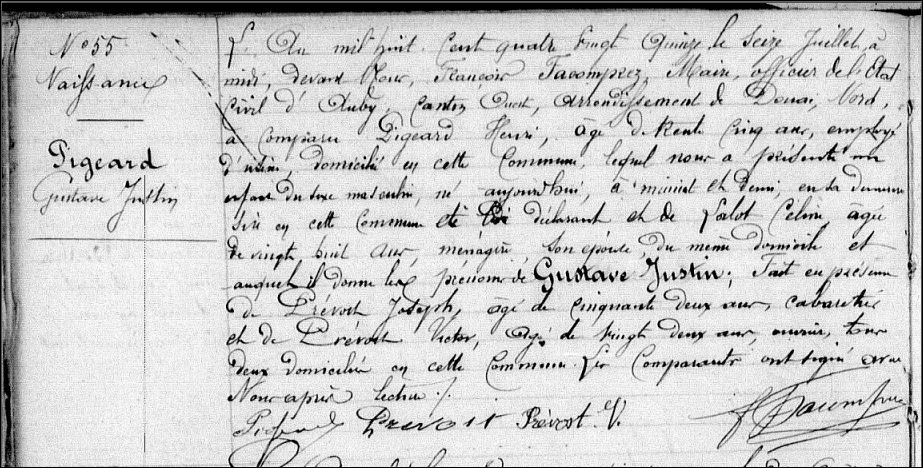 N° 55
Naissance
Pigeard
Gustave Justin
L'An mil huit cent quatre vingt quinze le seize Juillet, à
midi, devant Nous, François Jacomprez, Maire, officier de l'Etat
Civil d'Auby, Canton Ouest, arrondissement de Douai, Nord,
a comparu Pigeard Henri, âgé de trente cinq ans, employé
d'usine, domicilié en cette Commune, lequel nous a présenté un
enfant du sexe masculin, né aujourd'hui, à minuit et demi, en sa demeure
sise en cette Commune de lui déclarant et de Lalot Céline, âgée
de vingt huit ans, ménagère, son épouse, du même domicile et
auquel il donne les prénoms de Gustave Justin; Fait en présence
de Prévost Joseph, âgé de cinquante deux ans, cabaretier
et de Prévost Victor, âgé de vingt deux ans, ouvrier, tous
deux domiciliés en cette Commune. Les Comparants ont signé avec
Nous après lecture ./.
Pigeard Prevost Prévost V.